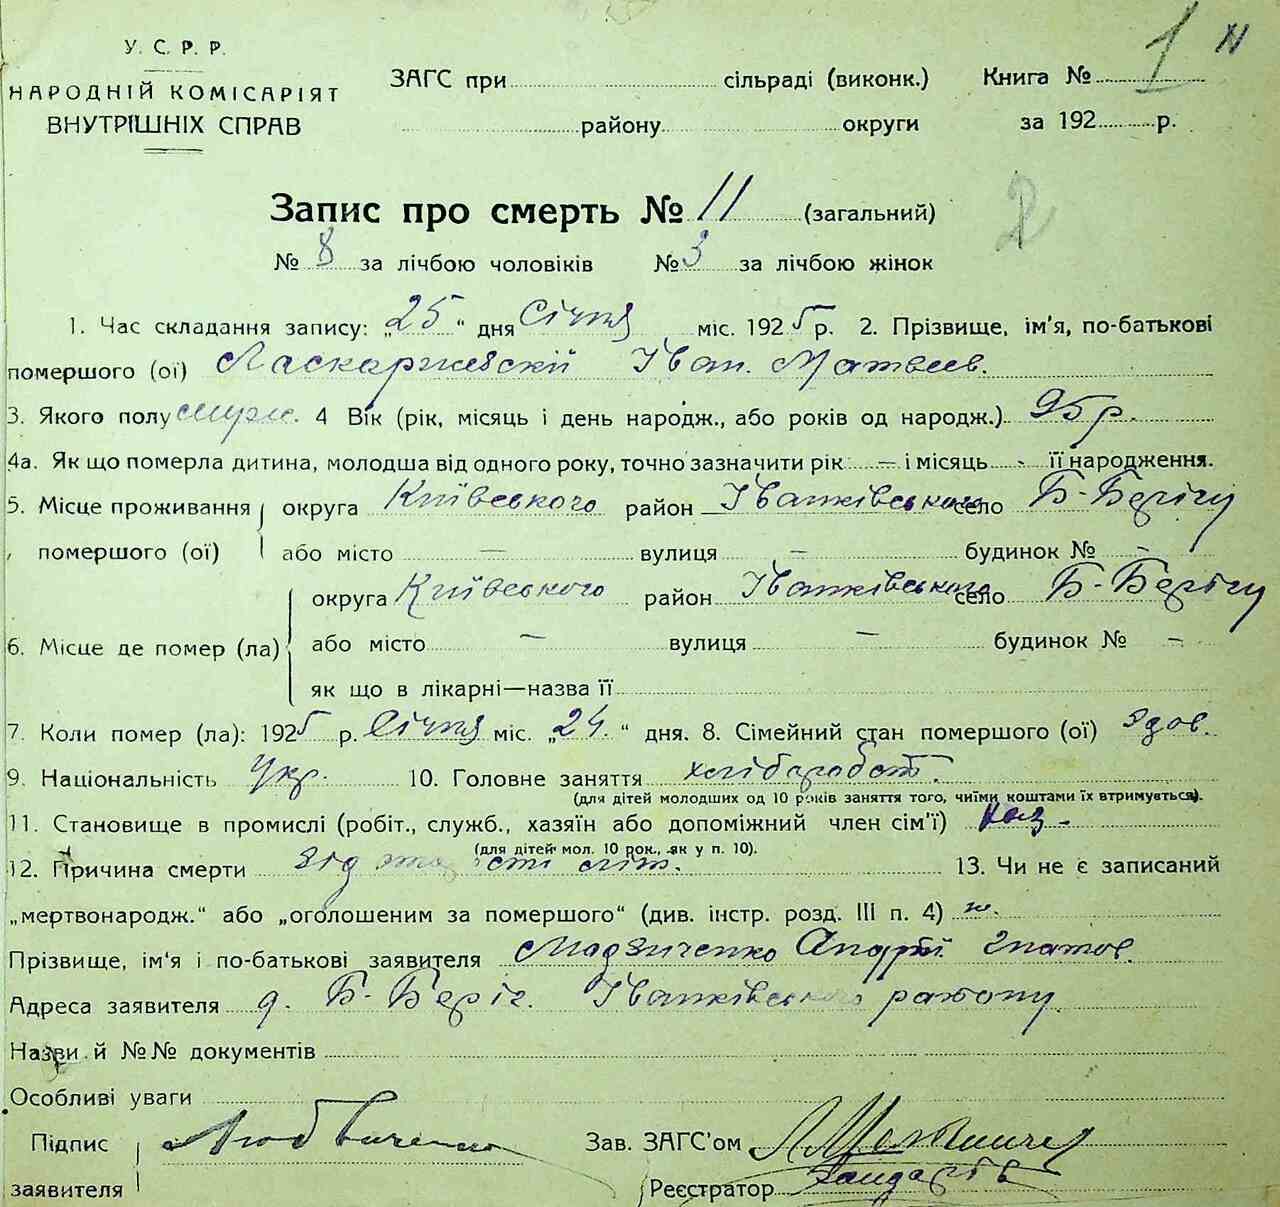 У. С. Р. Р.
НАРОДНІЙ КОМІСАРІЯТ
ВНУТРІШНІХ СПРАВ
ЗАГС при сільраді (виконк.)
району округи
Книга № 1
за 192 р.
Запис про смерть № 11 (загальний)
2
№ 8 за лічбою чоловіків № 3 за лічбою жінок
1. Час складання запису: „25“ дня Січня міс. 1925 р. 2. Прізвище, ім'я, по-батькові
помершого (ої) Ласкаржевскій Іван. Матвеев.
3. Якого полу муж. 4 Вік (рік, місяць і день народж., або років од народж.) 95 р.
4а. Як що померла дитина, молодша від одного року, точно зазначити рік — і місяць - її народження.
5. Місце проживання округа Київського район Іванківського село Б-Берігу
помершого (ої) або місто — вулиця — будинок № -
округа Київського район Іванківського село Б-Берігу
6. Місце де помер (ла) або місто — вулиця — будинок № -
як що в лікарні—назва її
7. Коли помер (ла): 1925 р. Січня міс. „24.“ дня. 8. Сімейний стан помершого (ої) здов.
9. Національність Укр. 10. Головне заняття хліборобст.
(для дітей молодших од 10 років заняття того, чиїми коштами їх втримується).
11. Становище в промислі (робіт., служб., хазяїн або допоміжний член сім'ї) хаз.
(для дітей мол. 10 рок., як у п. 10).
12. Причина смерти від літ. 13. Чи не є записаний
„мертвонародж.“ або „оголошеним за помершого“ (див. інстр. розд. III п. 4)
Прізвище, ім'я і по-батькові заявителя Андрій Гнатов.
Адреса заявителя д. Б-Беріг. Іванківського району
Назви й №№ документів
Особливі уваги
Підпис Зав. ЗАГС'ом
заявителя Реєстратор